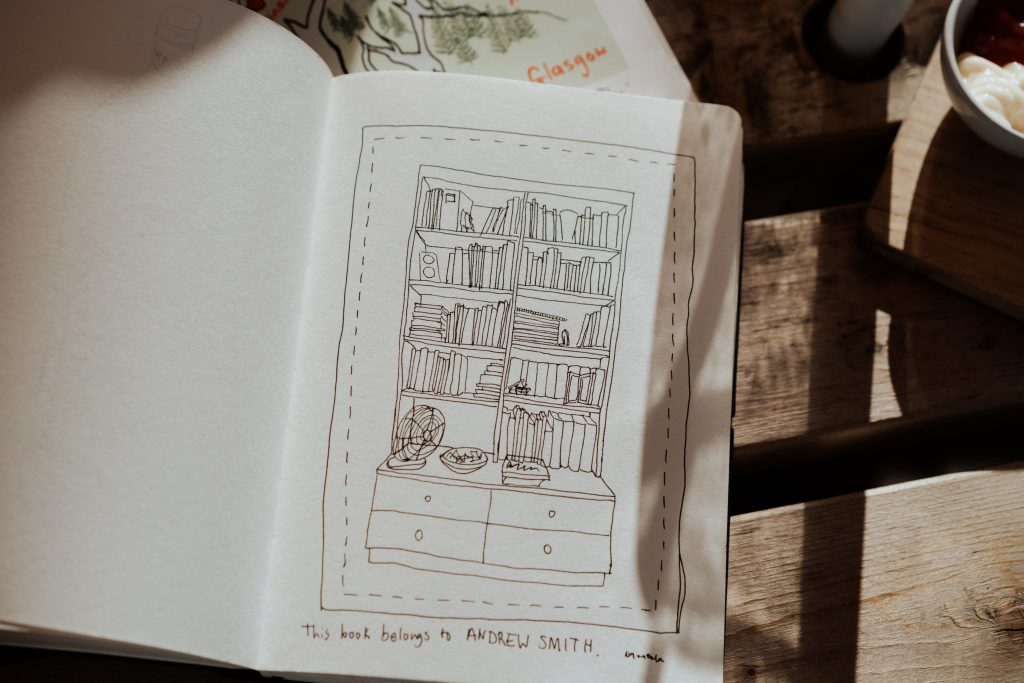 Glasgow
This book belongs to ANDREW SMITH.